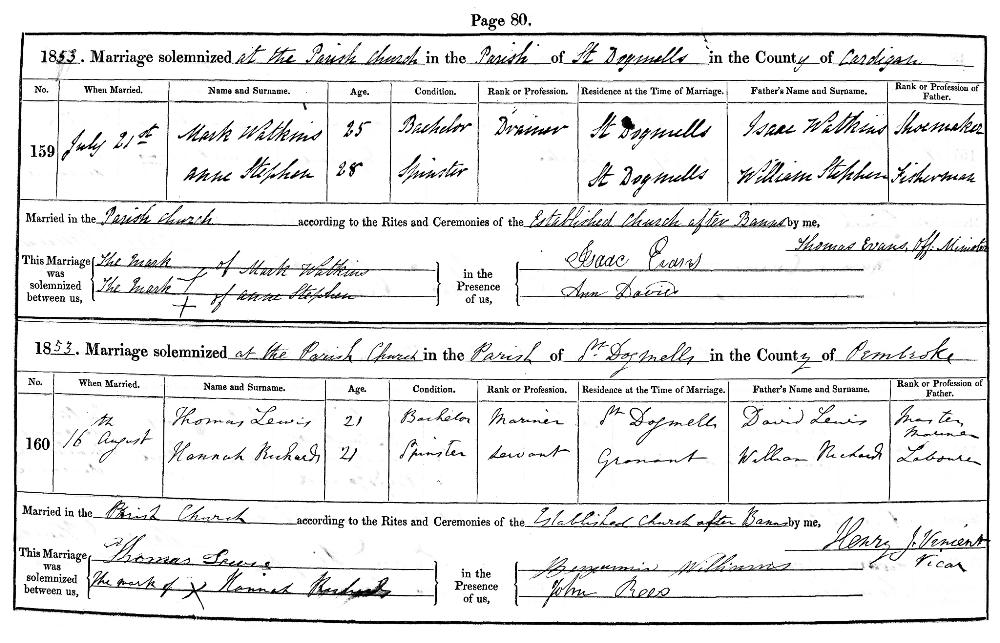 Page 80.
1853. Marriage solemnized at the Parish Church in the Parish of St Dogmells in the County of Cardigan
No. When Married. Name and Surname. Age. Condition. Rank or Profession. Residence at the Time of Marriage. Father's Name and Surname. Rank or Profession of Father.
159 July 21st Mark Watkins 25 Bachelor Drainer St Dogmells Isaac Watkins Shoemaker
Anne Stephen 28 Spinster St Dogmells William Stephen Fisherman
Married in the Parish Church according to the Rites and Ceremonies of the Established Church after Banns by me,
Thomas Evans, Off. Minister
This Marriage was solemnized between us, The Mark + of Mark Watkins
The Mark + of Anne Stephen
in the Presence of us, Isaac Evans
Ann Davies
1853. Marriage solemnized at the Parish Church in the Parish of St. Dogmells in the County of Pembroke
No. When Married. Name and Surname. Age. Condition. Rank or Profession. Residence at the Time of Marriage. Father's Name and Surname. Rank or Profession of Father.
160 16th August Thomas Lewis 21 Bachelor Mariner St Dogmells David Lewis Master Mariner
Hannah Richards 21 Spinster Servant Granant William Richards Labourer
Married in the Parish Church according to the Rites and Ceremonies of the Established Church after Banns by me,
Henry J. Vincent
Vicar
This Marriage was solemnized between us, Thomas Lewis
The mark of x Hannah Richards
in the Presence of us, Benjamin Williams
John Rees